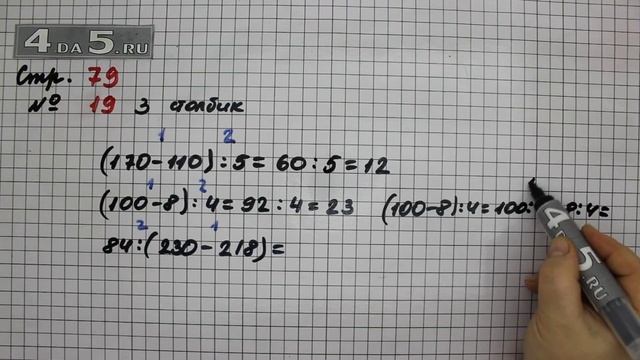 4 DA 5.RU
Стр. 79
№ 19 3 столбик
1 2
(170-110):5=60:5=12
1 2
(100-8):4=92:4=23 (100-8):4=100: 8:4=
2 1
84:(230-218)=
4 DA 5.RU